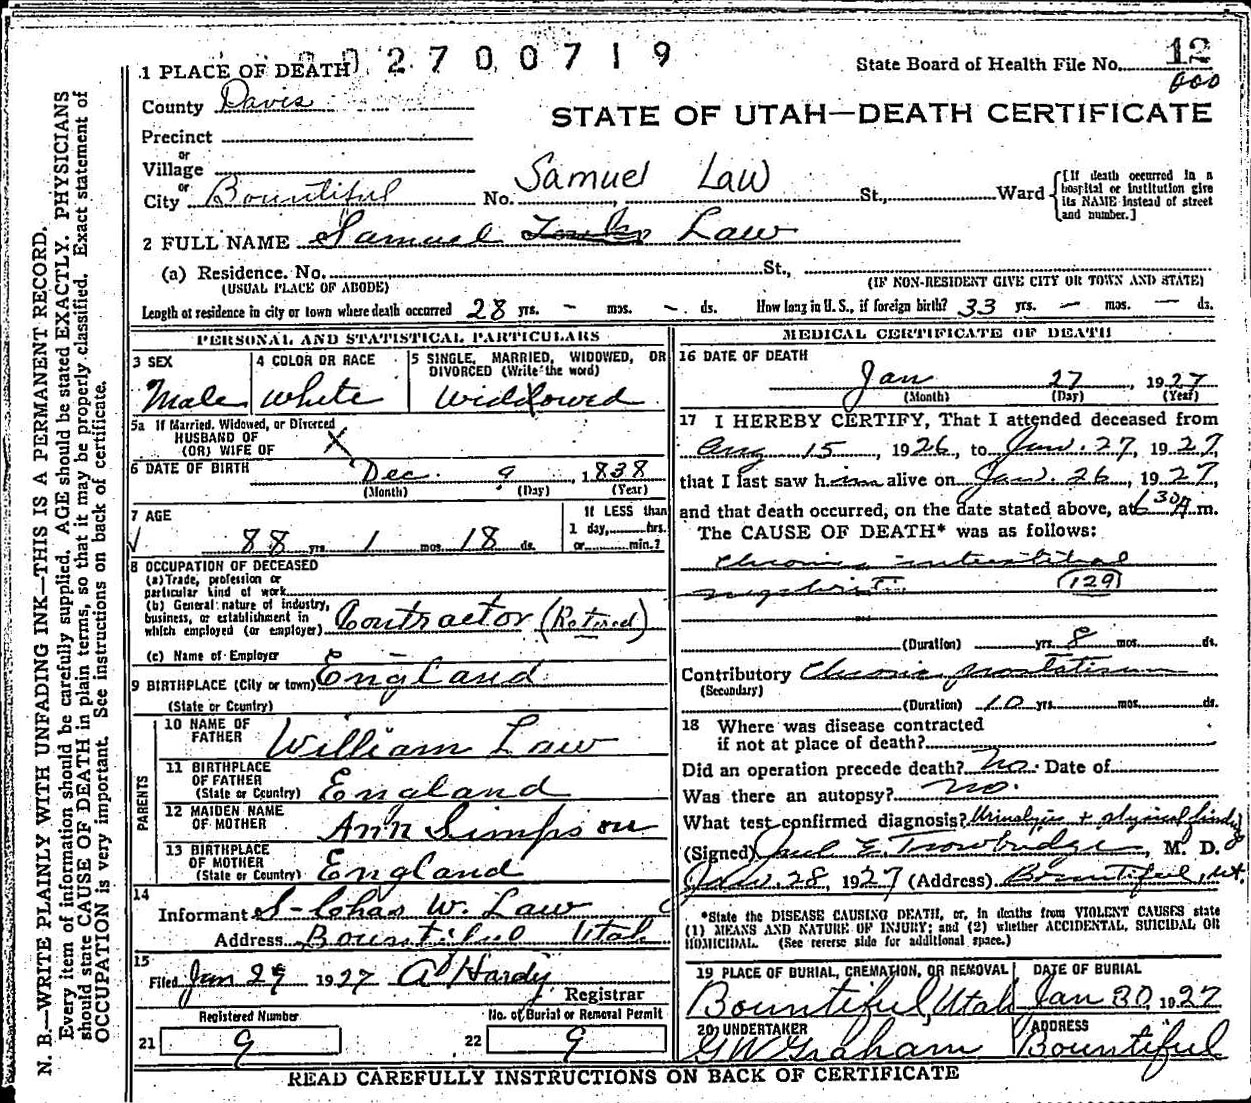 002700719
State Board of Health File No. 12
000
1 PLACE OF DEATH
County Davis
STATE OF UTAH—DEATH CERTIFICATE
Precinct
or
Village
or
City Bountiful No. Samuel Law St., Ward
[If death occurred in a hospital or institution give its NAME instead of street and number.]
2 FULL NAME Samuel Law
(a) Residence. No. St.,
(USUAL PLACE OF ABODE) (IF NON-RESIDENT GIVE CITY OR TOWN AND STATE)
Length of residence in city or town where death occurred 28 yrs. – mos. – ds. How long in U.S., if foreign birth? 33 yrs. – mos. – ds.
PERSONAL AND STATISTICAL PARTICULARS
3 SEX
Male
4 COLOR OR RACE
White
5 SINGLE, MARRIED, WIDOWED, OR
DIVORCED (Write the word)
Widowed
5a If Married, Widowed, or Divorced
HUSBAND OF
(OR) WIFE OF X
6 DATE OF BIRTH Dec. 9, 1838
(Month) (Day) (Year)
7 AGE
88 yrs. 1 mos. 18 ds.
If LESS than
1 day, hrs.
or min.?
8 OCCUPATION OF DECEASED
(a) Trade, profession or
particular kind of work
(b) General nature of industry,
business, or establishment in
which employed (or employer) Contractor (Retired)
(c) Name of Employer –
9 BIRTHPLACE (City or town) England
(State or Country)
PARENTS
10 NAME OF
FATHER William Law
11 BIRTHPLACE
OF FATHER
(State or Country) England
12 MAIDEN NAME
OF MOTHER Ann Simpson
13 BIRTHPLACE
OF MOTHER
(State or Country) England
14
Informant S-Chas W. Law
Address Bountiful Utah
15
Filed Jan 29 1927 Hardy
Registrar
Registered Number
21 9
No. of Burial or Removal Permit
22 9
MEDICAL CERTIFICATE OF DEATH
16 DATE OF DEATH
Jan 27, 1927
(Month) (Day) (Year)
17 I HEREBY CERTIFY, That I attended deceased from
Aug 15, 1926, to Jan. 27, 1927,
that I last saw him alive on Jan. 26, 1927,
and that death occurred, on the date stated above, at 630A.m.
The CAUSE OF DEATH* was as follows:
Chronic interstitial
nephritis 129
(Duration) yrs. 8 mos. ds.
Contributory Chronic
(Secondary)
(Duration) 10 yrs. mos. ds.
18 Where was disease contracted
if not at place of death?
Did an operation precede death? No. Date of
Was there an autopsy? No.
What test confirmed diagnosis? Urinalysis + physical finding
(Signed) Paul E. Trowbridge, M. D.
Jan. 28, 1927 (Address) Bountiful, Ut.
*State the DISEASE CAUSING DEATH, or, in deaths from VIOLENT CAUSES state
(1) MEANS AND NATURE OF INJURY; and (2) whether ACCIDENTAL, SUICIDAL OR
HOMICIDAL. (See reverse side for additional space.)
19 PLACE OF BURIAL, CREMATION, OR REMOVAL
Bountiful, Utah
DATE OF BURIAL
Jan 30, 1927
20 UNDERTAKER
GW Graham
ADDRESS
Bountiful
READ CAREFULLY INSTRUCTIONS ON BACK OF CERTIFICATE
N. B.—WRITE PLAINLY WITH UNFADING INK—THIS IS A PERMANENT RECORD.
Every item of information should be carefully supplied. AGE should be stated EXACTLY. PHYSICIANS
should state CAUSE OF DEATH in plain terms, so that it may be properly classified. Exact statement of
OCCUPATION is very important. See instructions on back of certificate.